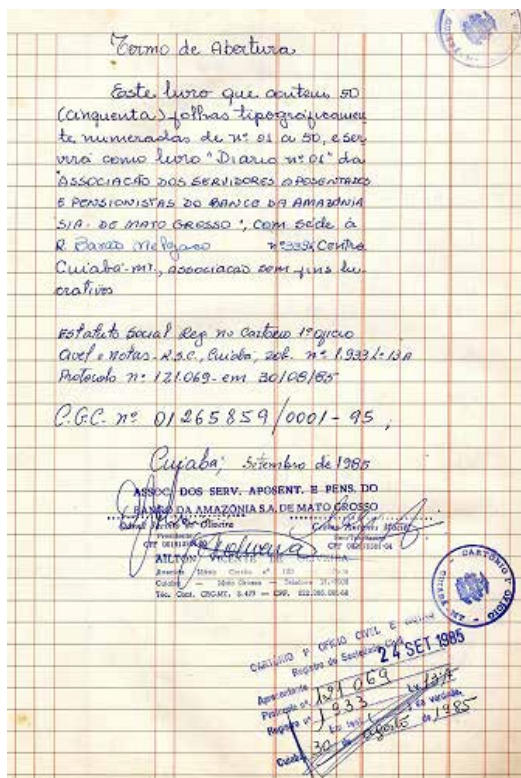 Termo de Abertura
Este livro que contem 50
(cinquenta) folhas tipograficamen
te numeradas de nº 01 a 50, e ser
virá como livro "Diario nº 01" da
ASSOCIAÇÃO DOS SERVIDORES APOSENTADOS
E PENSIONISTAS DO BANCO DA AMAZÔNIA
S/A. DE MATO GROSSO", com séde à
R Barão Melgaço nº 3394 Centro
Cuiabá-MT, associação sem fins lu
crativos
Estatuto Social Reg no Cartório 1º Ofício
Civel e Notas - R.S.C., Cuiabá, sob. nº 1.933 L-13A
Protocolo nº 121.069 - em 30/08/85
C.G.C. nº 01265859/0001-95,
Cuiabá, Setembro de 1985
ASSOC. DOS SERV. APOSENT. E PENS. DO
BANCO DA AMAZÔNIA S.A. DE MATO GROSSO
Presidente
AILTON VICENTE DE OLIVEIRA
Cuiabá — Mato Grosso
CARTÓRIO 1º OFICIO
CUIABÁ
CARTÓRIO 1º OFICIO CIVEL
Registro de Sociedade Civil
24 SET 1985
Apresentante
Protocolo nº 121 069
Registro nº 1933 Lv 13A
Cuiabá 30 de agosto de 1985